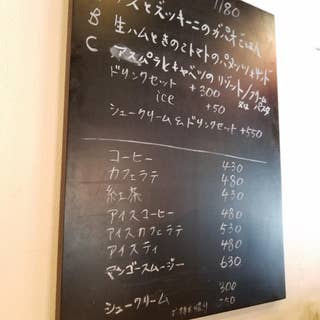 1180
スとズッキーニのガパオごはん
B 生ハムときのことトマトの
C アスパラとキャベツのリゾット/クリーム
又は パスタ
ドリンクセット +300
ice +50
シュークリーム&ドリンクセット +550
コーヒー 430
カフェラテ 480
紅茶 430
アイスコーヒー 480
アイスカフェラテ 530
アイスティ 480
マンゴースムージー 630
300
シュークリーム 250